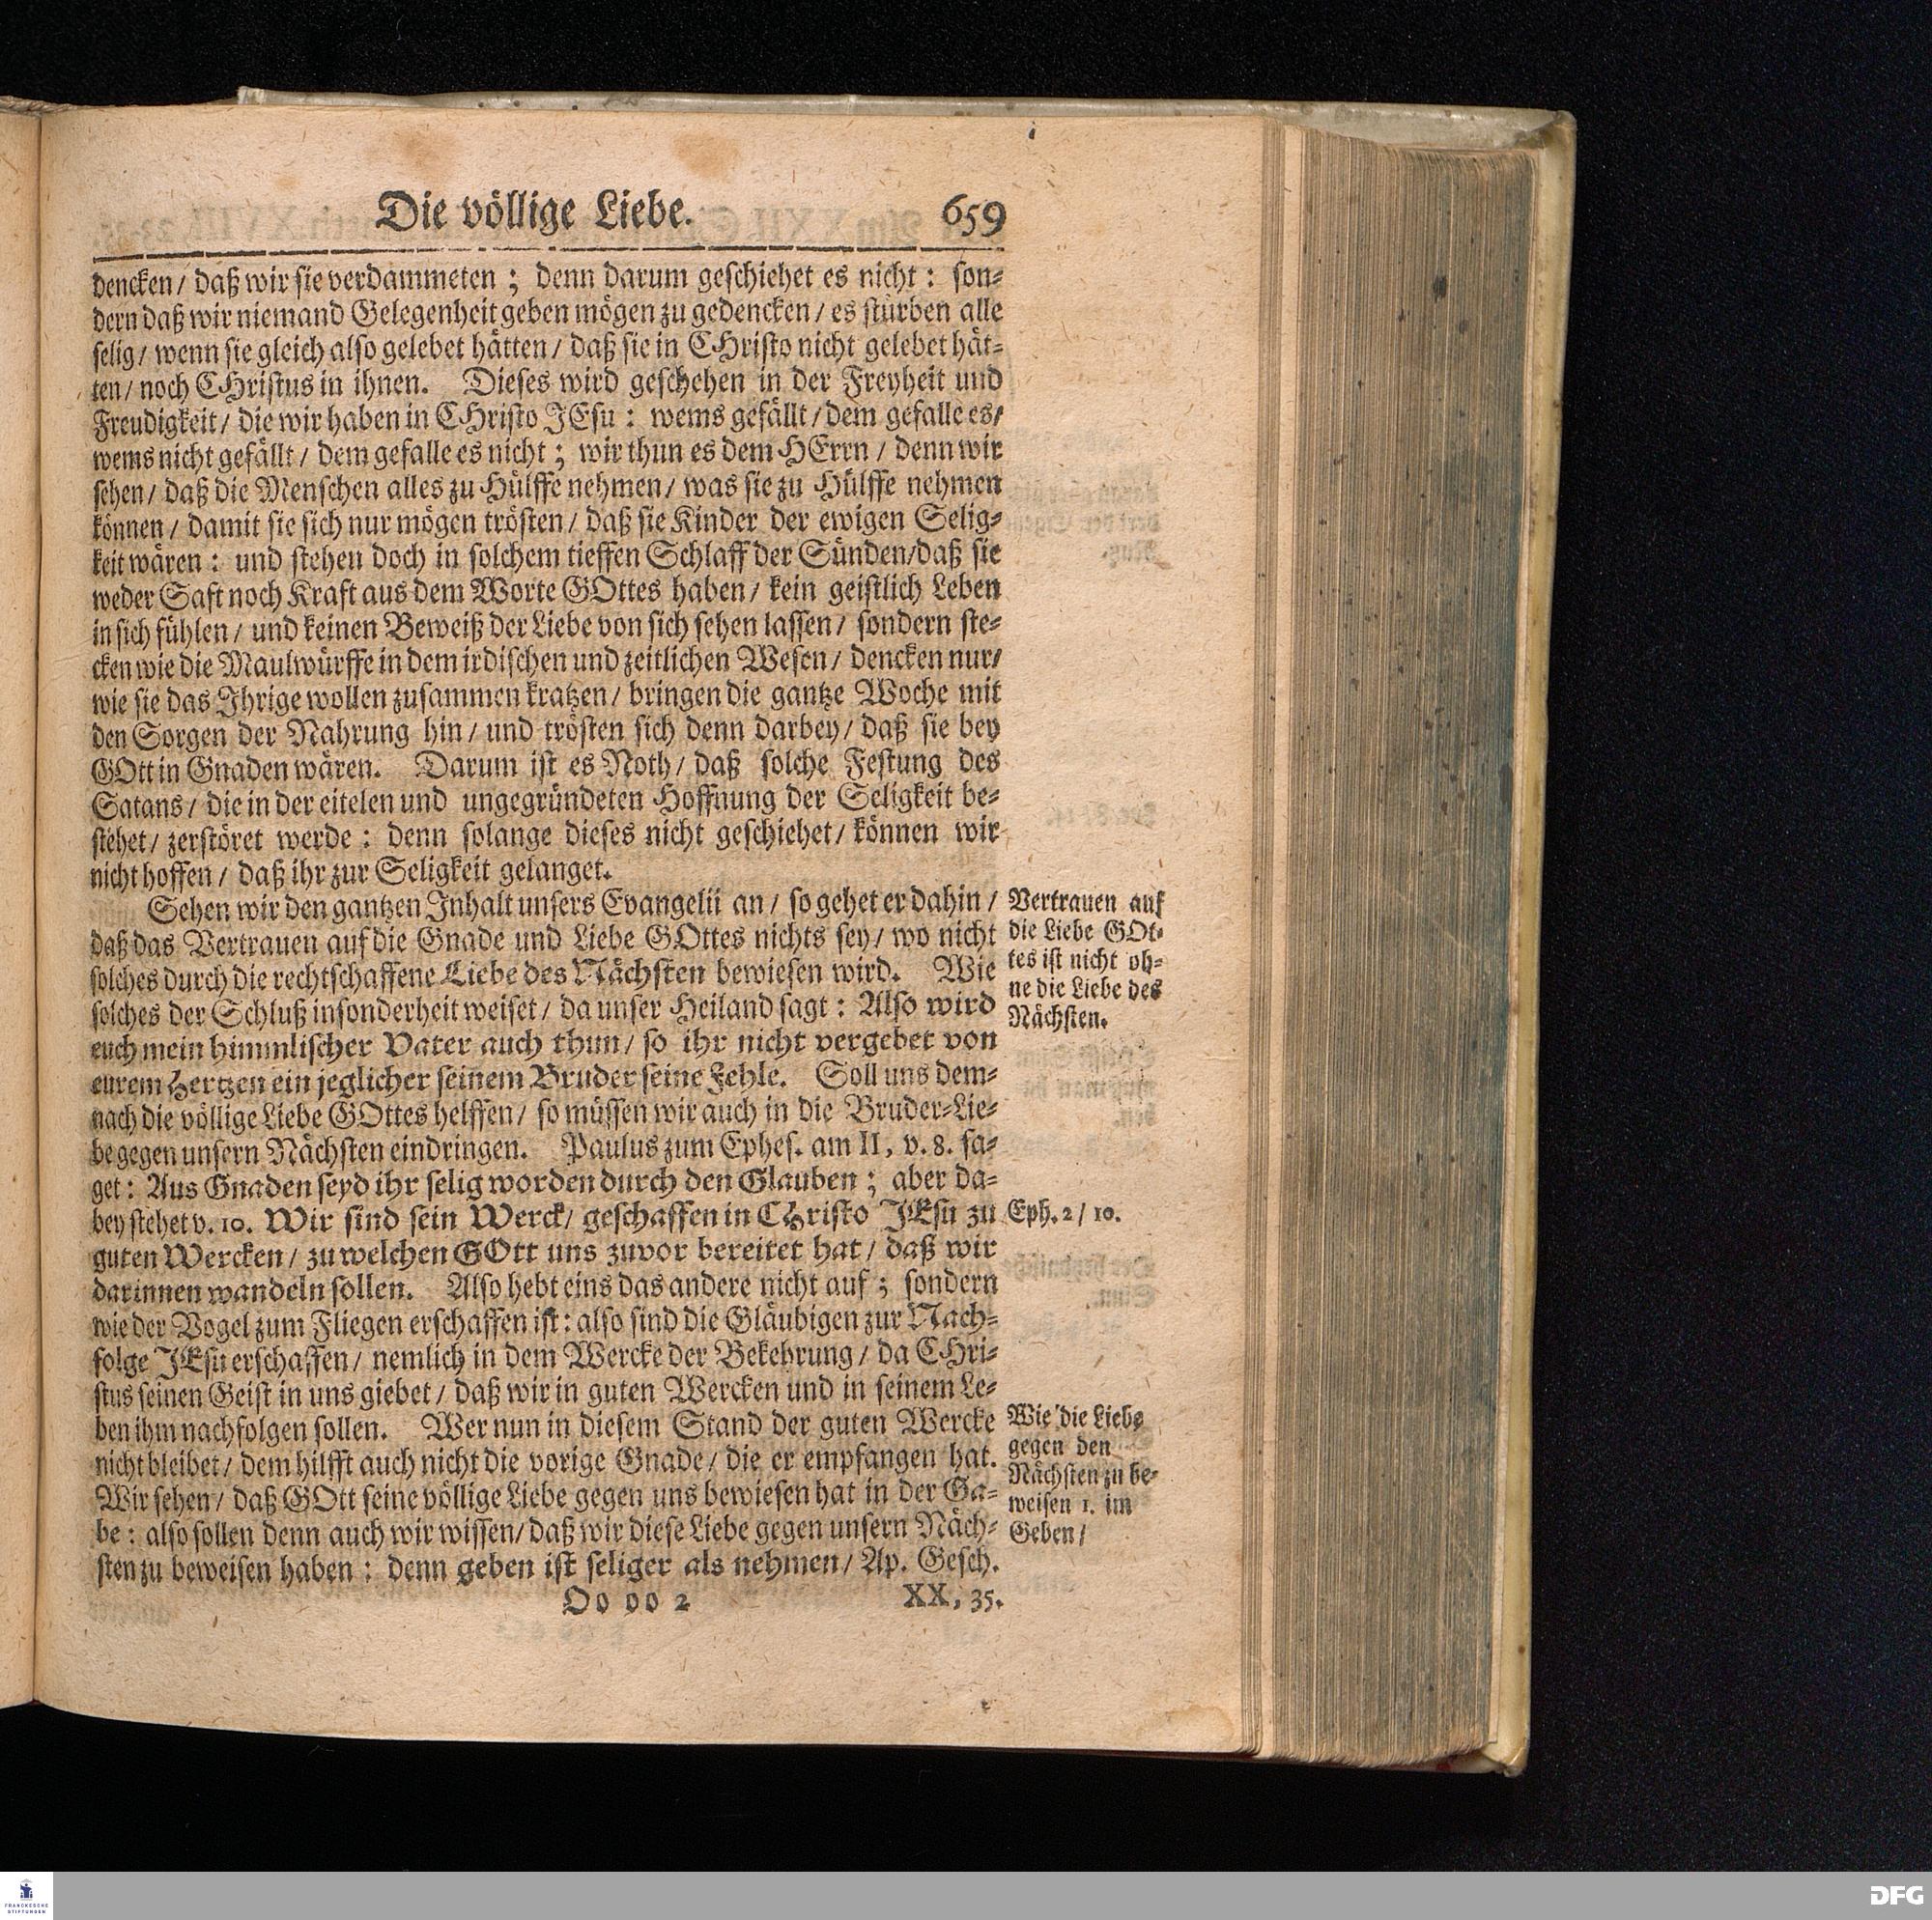 Die völlige Liebe. 659
dencken / daß wir sie verdammeten ; denn darum geschiehet es nicht : son-
dern daß wir niemand Gelegenheit geben mögen zu gedencken / es stürben alle
selig / wenn sie gleich also gelebet hätten / daß sie in CHristo nicht gelebet hät-
ten / noch CHristus in ihnen. Dieses wird geschehen in der Freyheit und
Freudigkeit / die wir haben in CHristo JEsu : wems gefällt / dem gefalle es /
wems nicht gefällt / dem gefalle es nicht ; wir thun es dem HErrn / denn wir
sehen / daß die Menschen alles zu Hülffe nehmen / was sie zu Hülffe nehmen
können / damit sie sich nur mögen trösten / daß sie Kinder der ewigen Selig-
keit wären : und stehen doch in solchem tieffen Schlaff der Sünden/daß sie
weder Saft noch Kraft aus dem Worte GOttes haben / kein geistlich Leben
in sich fühlen / und keinen Beweiß der Liebe von sich sehen lassen / sondern ste-
cken wie die Maulwürffe in dem irdischen und zeitlichen Wesen / dencken nur/
wie sie das Ihrige wollen zusammen kratzen / bringen die gantze Woche mit
den Sorgen der Nahrung hin / und trösten sich denn darbey / daß sie bey
GOtt in Gnaden wären. Darum ist es Noth / daß solche Festung des
Satans / die in der eitelen und ungegründeten Hoffnung der Seligkeit be-
stehet / zerstöret werde : denn solange dieses nicht geschiehet / können wir
nicht hoffen / daß ihr zur Seligkeit gelanget.
Sehen wir den gantzen Inhalt unsers Evangelii an / so gehet er dahin /
daß das Vertrauen auf die Gnade und Liebe GOttes nichts sey / wo nicht
solches durch die rechtschaffene Liebe des Nächsten bewiesen wird. Wie
solches der Schluß insonderheit weiset / da unser Heiland sagt : Also wird
euch mein himmlischer Vater auch thun / so ihr nicht vergebet von
eurem Hertzen ein jeglicher seinem Bruder seine Fehle. Soll uns dem-
nach die völlige Liebe GOttes helffen / so müssen wir auch in die Bruder-Lie-
be gegen unsern Nächsten eindringen. Paulus zum Ephes. am II, v. 8. sa-
get : Aus Gnaden seyd ihr selig worden durch den Glauben ; aber da-
bey stehet v. 10. Wir sind sein Werck / geschaffen in CHristo JEsu zu
guten Wercken / zu welchen GOtt uns zuvor bereitet hat / daß wir
darinnen wandeln sollen. Also hebt eins das andere nicht auf ; sondern
wie der Vogel zum Fliegen erschaffen ist : also sind die Gläubigen zur Nach-
folge JEsu erschaffen / nemlich in dem Wercke der Bekehrung / da CHri-
stus seinen Geist in uns giebet / daß wir in guten Wercken und in seinem Le-
ben ihm nachfolgen sollen. Wer nun in diesem Stand der guten Wercke
nicht bleibet / dem hilfft auch nicht die vorige Gnade / die er empfangen hat.
Wir sehen / daß GOtt seine völlige Liebe gegen uns bewiesen hat in der Ga-
be : also sollen denn auch wir wissen / daß wir diese Liebe gegen unsern Näch-
sten zu beweisen haben : denn geben ist seliger als nehmen / Ap. Gesch.
Oo oo 2 XX, 35.
Vertrauen auf
die Liebe GOt-
tes ist nicht oh-
ne die Liebe des
Nächsten.
Eph. 2 / 10.
Wie die Liebe
gegen den
Nächsten zu be-
weisen 1. im
Geben /
FRANCKESCHE
STIFTUNGEN
DFG